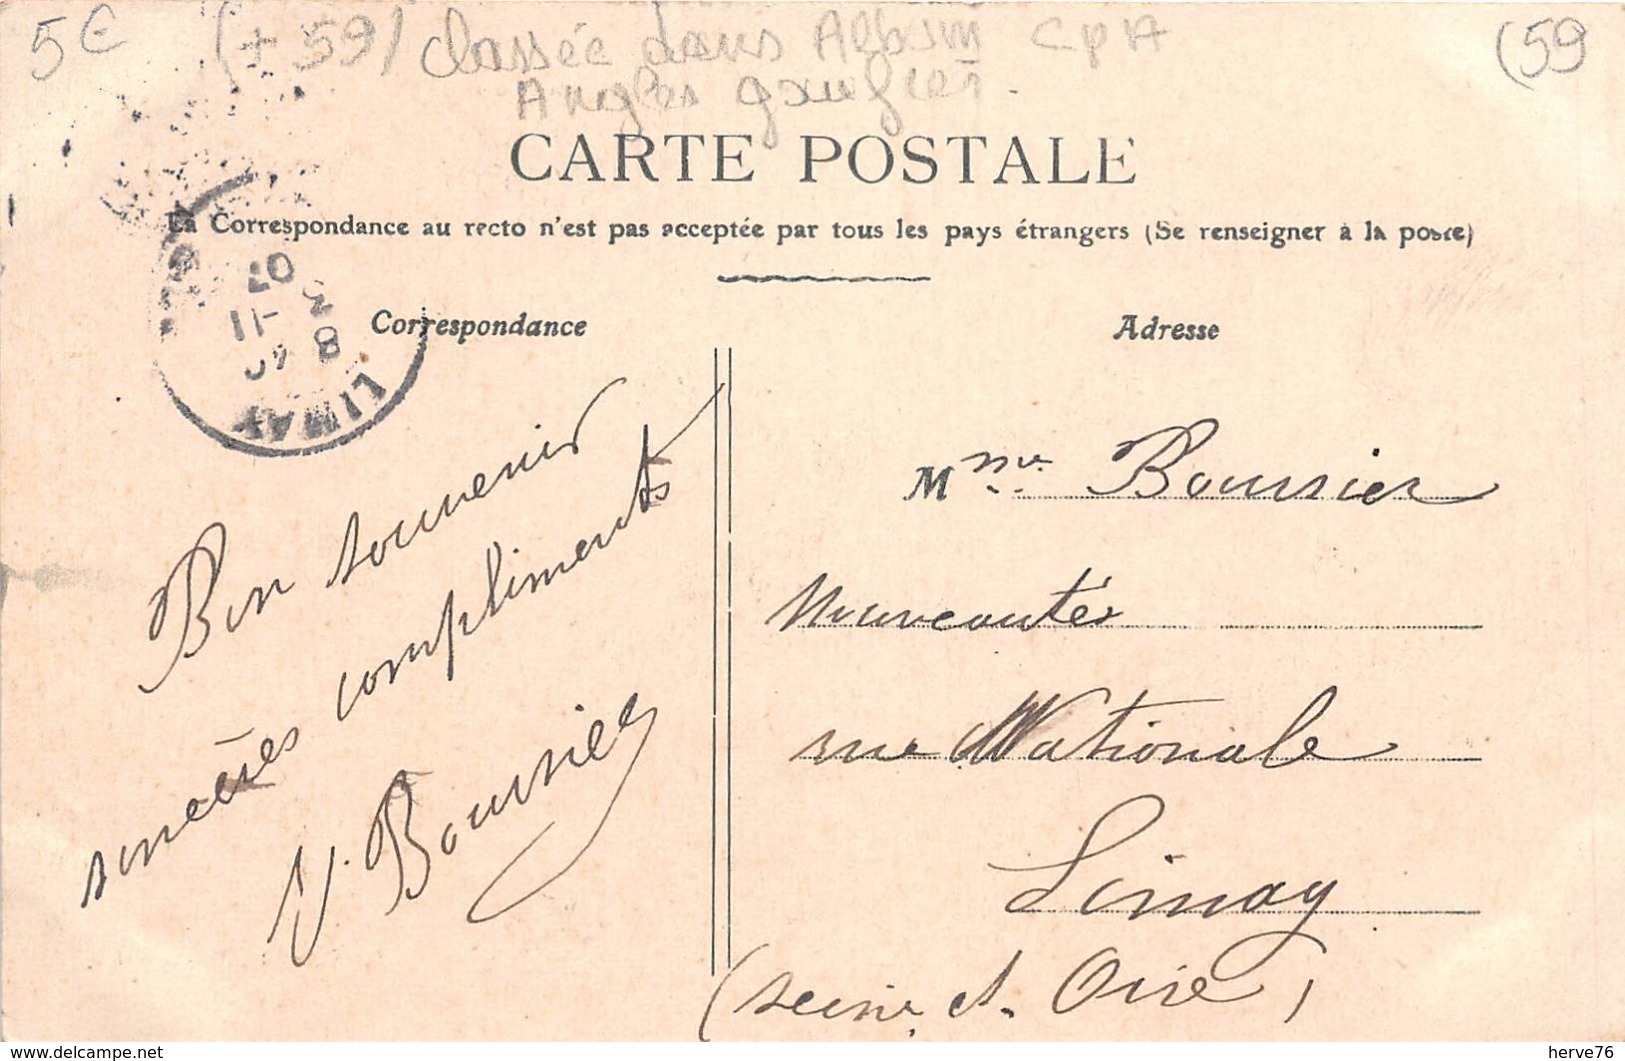 5€ (+59) Classée dans Album CPA (59
Angles gaufrés.
CARTE POSTALE
La Correspondance au recto n'est pas acceptée par tous les pays étrangers (Se renseigner à la poste)
Correspondance
Bon souvenir
sincères compliments
V. Boursier
LIMAY
8 40
3 -11
07
Adresse
Mme Boursier
Nouveautés
rue Nationale
Limay
(Seine et Oise)
herve76